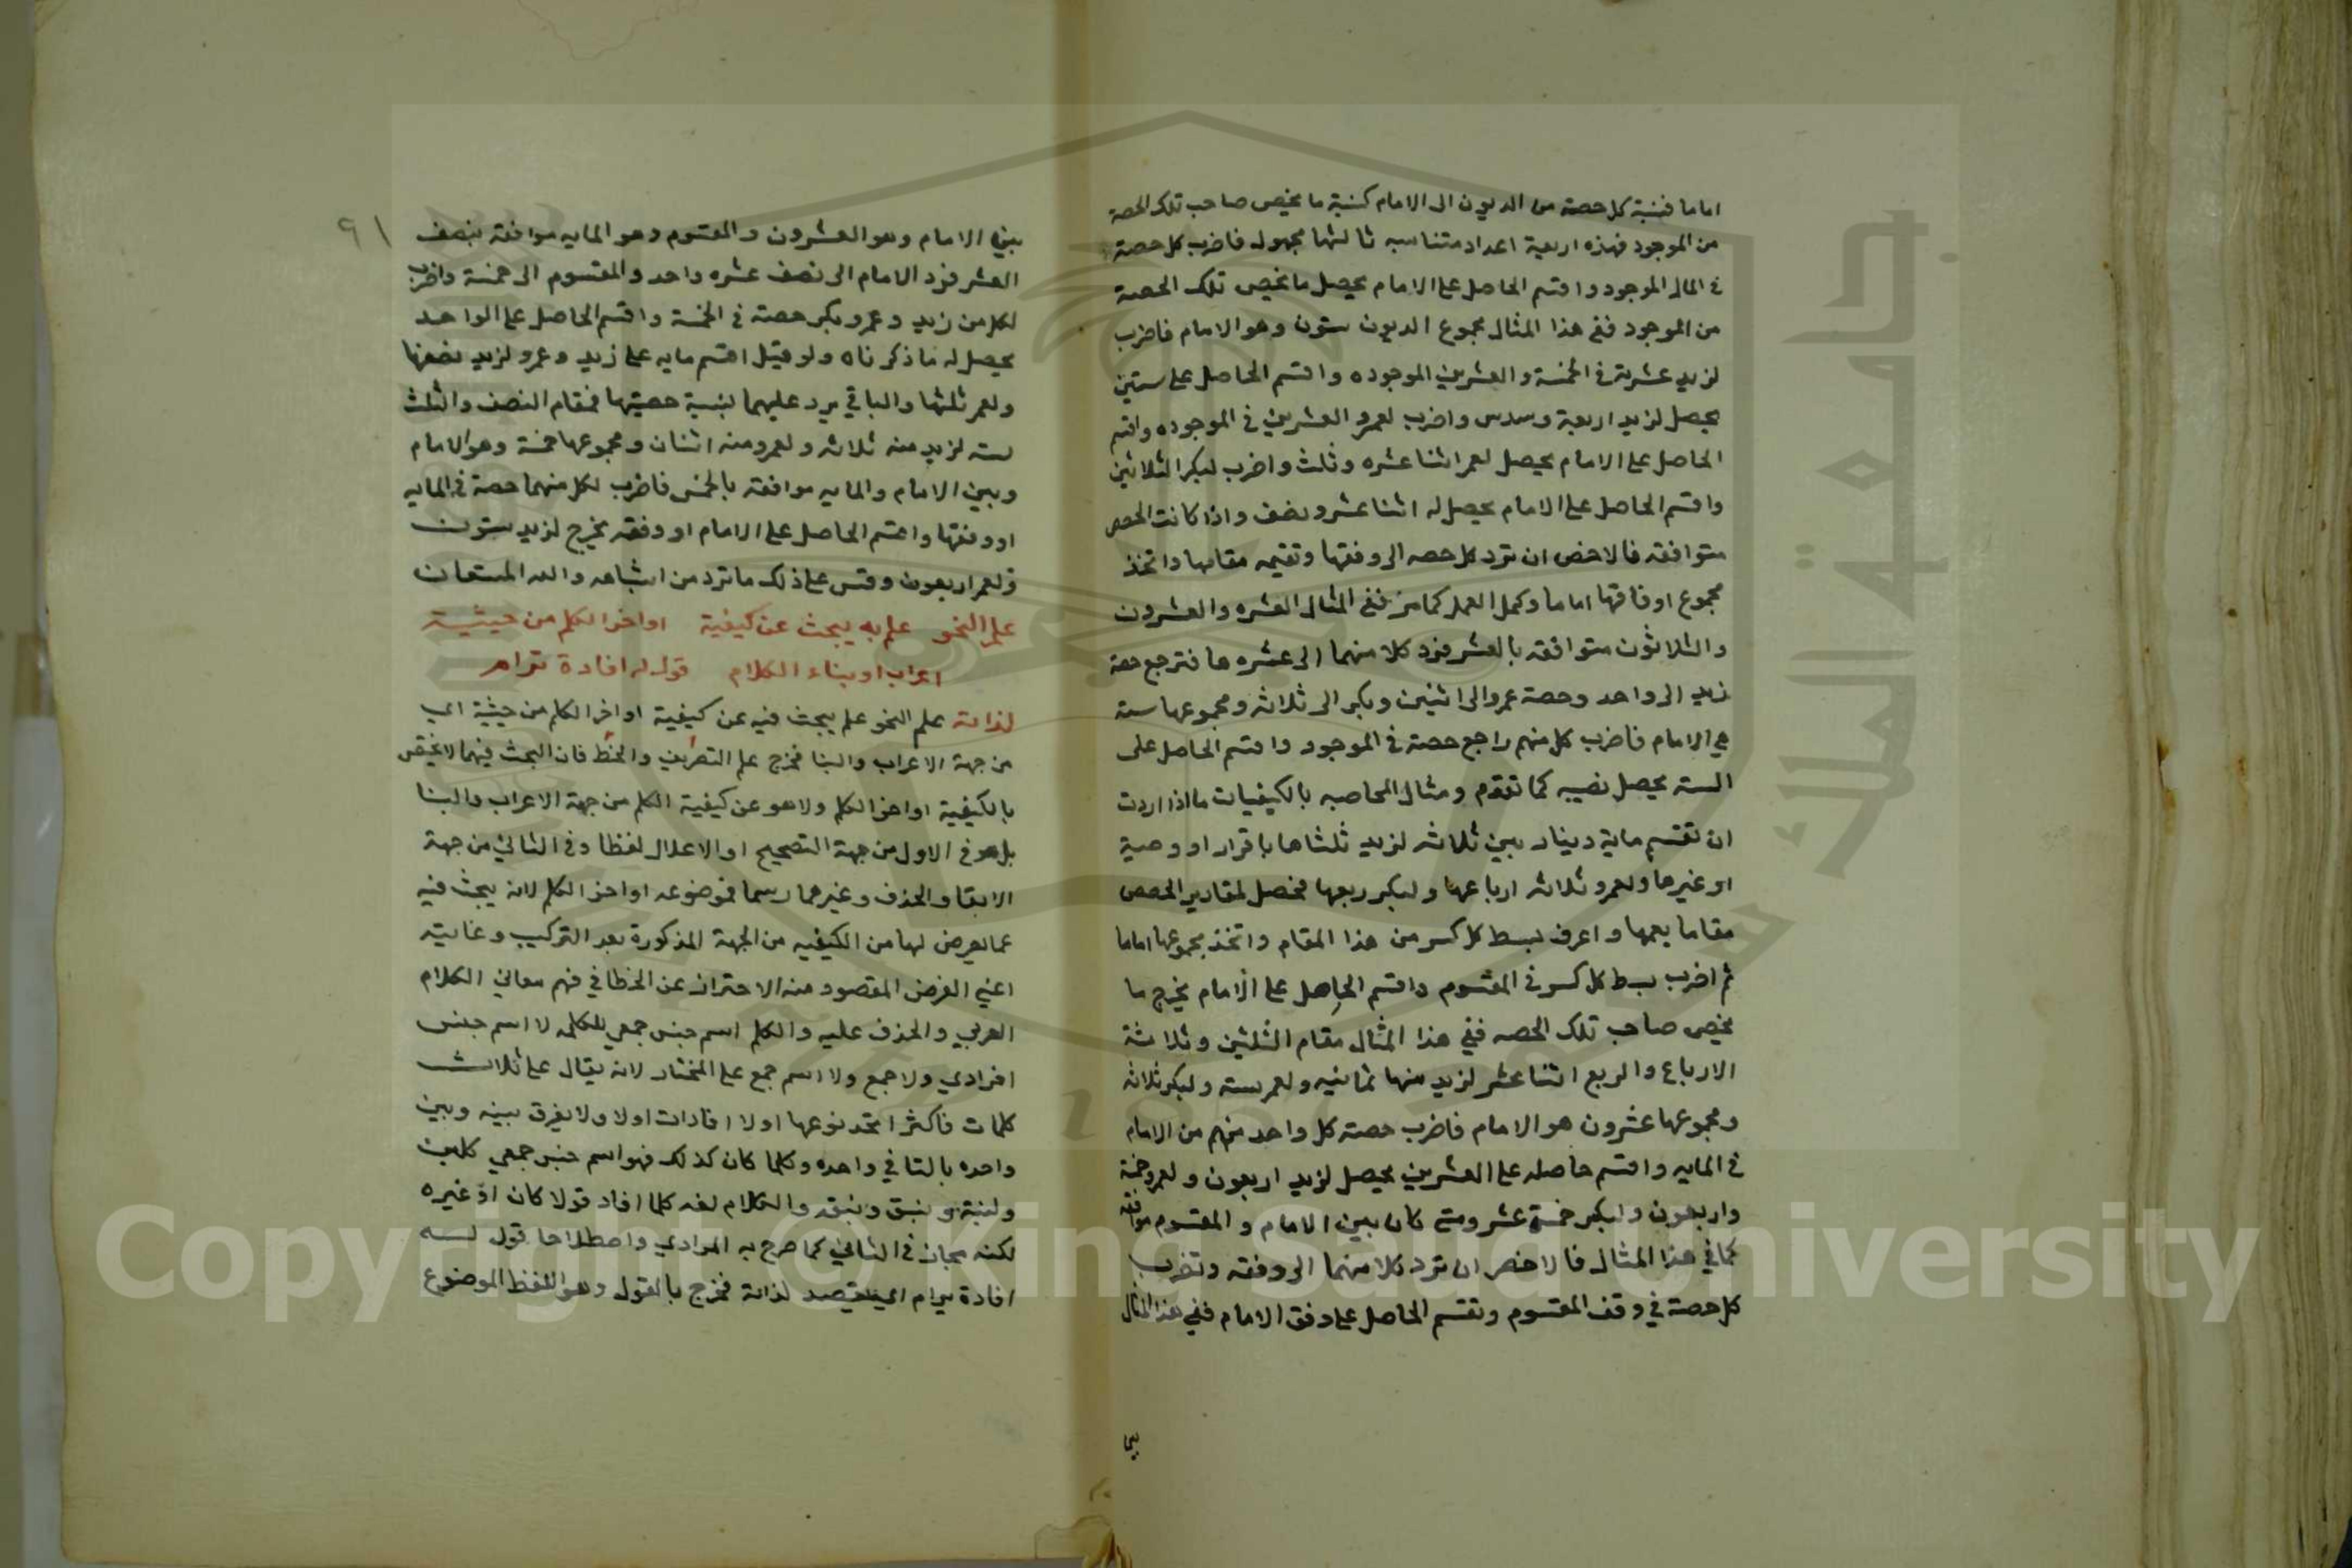 اماما فنسبة كل حصة من الديون الى الامام كنسبة ما يخص صاحب تلك الحصة
من الموجود فهذه اربعة اعداد متناسبه ثالثها مجهول فاضرب كل حصة
في المال الموجود واقسم الحاصل على الامام يحصل ما يخص تلك الحصة
من الموجود ففي هذا المثال مجموع الديون ستون وهو الامام فاضرب
لزيد عشرته في الخمسة والعشرين الموجوده واقسم الحاصل على ستين
يحصل لزيد اربعة وسدس واضرب لعمرو العشرين في الموجوده واقسم
الحاصل على الامام يحصل لعمر اثنا عشره وثلث واضرب لبكر الثلاثين
واقسم الحاصل على الامام يحصل له اثنا عشر ونصف واذا كانت الحصص
متوافقه فالاخص ان ترد كل حصه الى وفقها وتقيمه مقامها واتخذ
مجموع اوفاقها اماما وكمل العمل كما مر ففي المثال العشره والعشرون
والثلاثون متوافقه بالعشر فرد كلا منهما الى عشره ها فترجع حصة
زيد الى واحد وحصة عمرو الى اثنين وبكر الى ثلاثه ومجموعها ستة
هي الامام فاضرب كل منهم راجع حصة في الموجود واقسم الحاصل على
الستة يحصل نصيبه كما تقدم ومثال المحاصه بالكيفيات ما اذا اردت
ان تقسم ماية دينار بين ثلاثه لزيد ثلثاها باقرار او وصية
او غيرها ولعمرو ثلاثه ارباعها ولبكر ربعها فحصل لمقادير الحصص
مقاما يعمها واعرف بسط كل كسر من هذا المقام واتخذ مجموعها اماما
ثم اضرب بسط كل كسر في المقسوم واقسم الحاصل على الامام يخرج ما
يخص صاحب تلك الحصه ففي هذا المثال مقام الثلثين وثلاثة
الارباع والربع اثنا عشر لزيد منها ثمانيه ولعمر سته ولبكر ثلاثه
ومجموعها عشرون هو الامام فاضرب حصة كل واحد منهم من الامام
في المايه واقسم حاصله على العشرين يحصل لزيد اربعون ولعمرو خمسة
واربعون ولبكر خمسة عشر ومتى كان بين الامام والمقسوم موافقه
كما في هذا المثال فالاخصر ان ترد كلا منهما الى وفقه وتضرب
كل حصة في وفق المقسوم وتقسم الحاصل على وفق الامام ففي هذا المثال
٩١
بين الامام وهو العشرون والمقسوم وهو المايه موافقه بنصف
العشر فرد الامام الى نصف عشره واحد والمقسوم الى خمسة واضرب
لكل من زيد وعمرو بكر حصته في الخمسة واقسم الحاصل على الواحد
يحصل له ما ذكرناه ولو قيل اقسم مايه على زيد وعمرو لزيد نصفها
ولعمر ثلثها والباقي يرد عليهما بنسبة حصتيهما فمقام النصف والثلث
سته لزيد منه ثلاثه ولعمرو منه اثنان ومجموعها خمسة وهو الامام
وبين الامام والمايه موافقه بالخمس فاضرب لكل منهما حصة في المايه
او وفقها واقسم الحاصل على الامام او وفقه يخرج لزيد ستون
ولعمر اربعون وقس على ذلك ما ترد من اشباهه والله المستعان
علم النحو علم به يبحث عن كيفية اواخر الكلم من حيثية
اعراب او بناء الكلام قول له افادة ترام
لذاته علم النحو علم يبحث فيه عن كيفية اواخر الكلم من حيثية اي
من جهة الاعراب والبنا فخرج علم التصريف والخط فان البحث فيهما لا يختص
بالكيفية اواخر الكلم ولا هو عن كيفية الكلم من جهة الاعراب والبنا
بل هو في الاول من جهة التصحيح او الاعلال لفظا وفي الثاني من جهة
الابقا والحذف وغيرهما رسما فموضوعه اواخر الكلم لانه يبحث فيه
عما يعرض لها من الكيفيه من الجهة المذكورة بعد التركيب وغايته
اعني الغرض المقصود منه الاحتراز عن الخطا في فهم معاني الكلام
العربي والحذف عليه والكلم اسم جنس جمعي للكلمه لا اسم جنس
افرادي ولا جمع ولا اسم جمع على المختار لانه يقال على ثلاث
كلمات فاكثر اتحد نوعها اولا افادات اولا ولا يفرق بينه وبين
واحده بالتا في واحده وكلما كان كذلك فهو اسم جنس جمعي كلبن
ولبنة ونبق ونبقه والكلام لغه كلما افاد قولا كان او غيره
لكنه مجاز في الثاني كما صرح به المرادي واصطلاحا قول له
افادة يرام اي يقصد لذاته فخرج بالقول وهو اللفظ الموضوع
Copyright © King Saud University
جامعة الملك سعود
1957